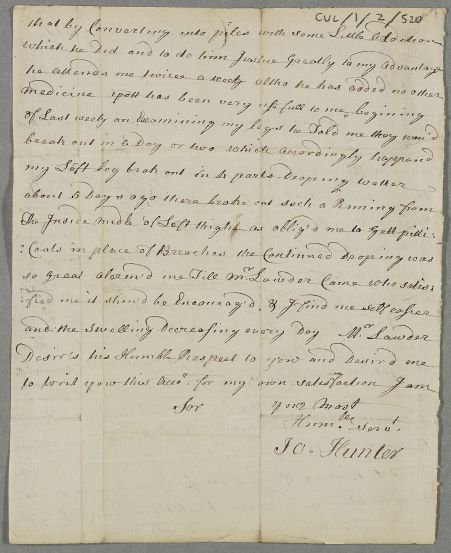 CUL/1/2/520
that by Converting into piles with some Little addition
which he Did and to do him Justice Greatly to my advantage
he attends me twice a week altho he has added no other
Medicine yett has been very usfull to me, begining
of Last week on Examining my Legs he Told me they wou'd
break out in a Day or two which accordingly happned
my Left Leg brok out in 4 parts Droping watter
about 5 Days ago there broke out such a Runing from
the Inside midle of Left thigh as oblig'd me to gett pitti:
:Coats in place of Breaches the Continued Droping was
so great alarm'd me Till Mr Lawder Came who satis:
:fied me it shou'd be Encourag'd, & I find me self easier
and the swelling Decreasing every Day Mr Lawder
Desir's his Humble Respect to yow and Desir'd me
to writ yow this Accn for my own satisfaction I am
Sir your Most
Humble Servt
Jo. Hunter